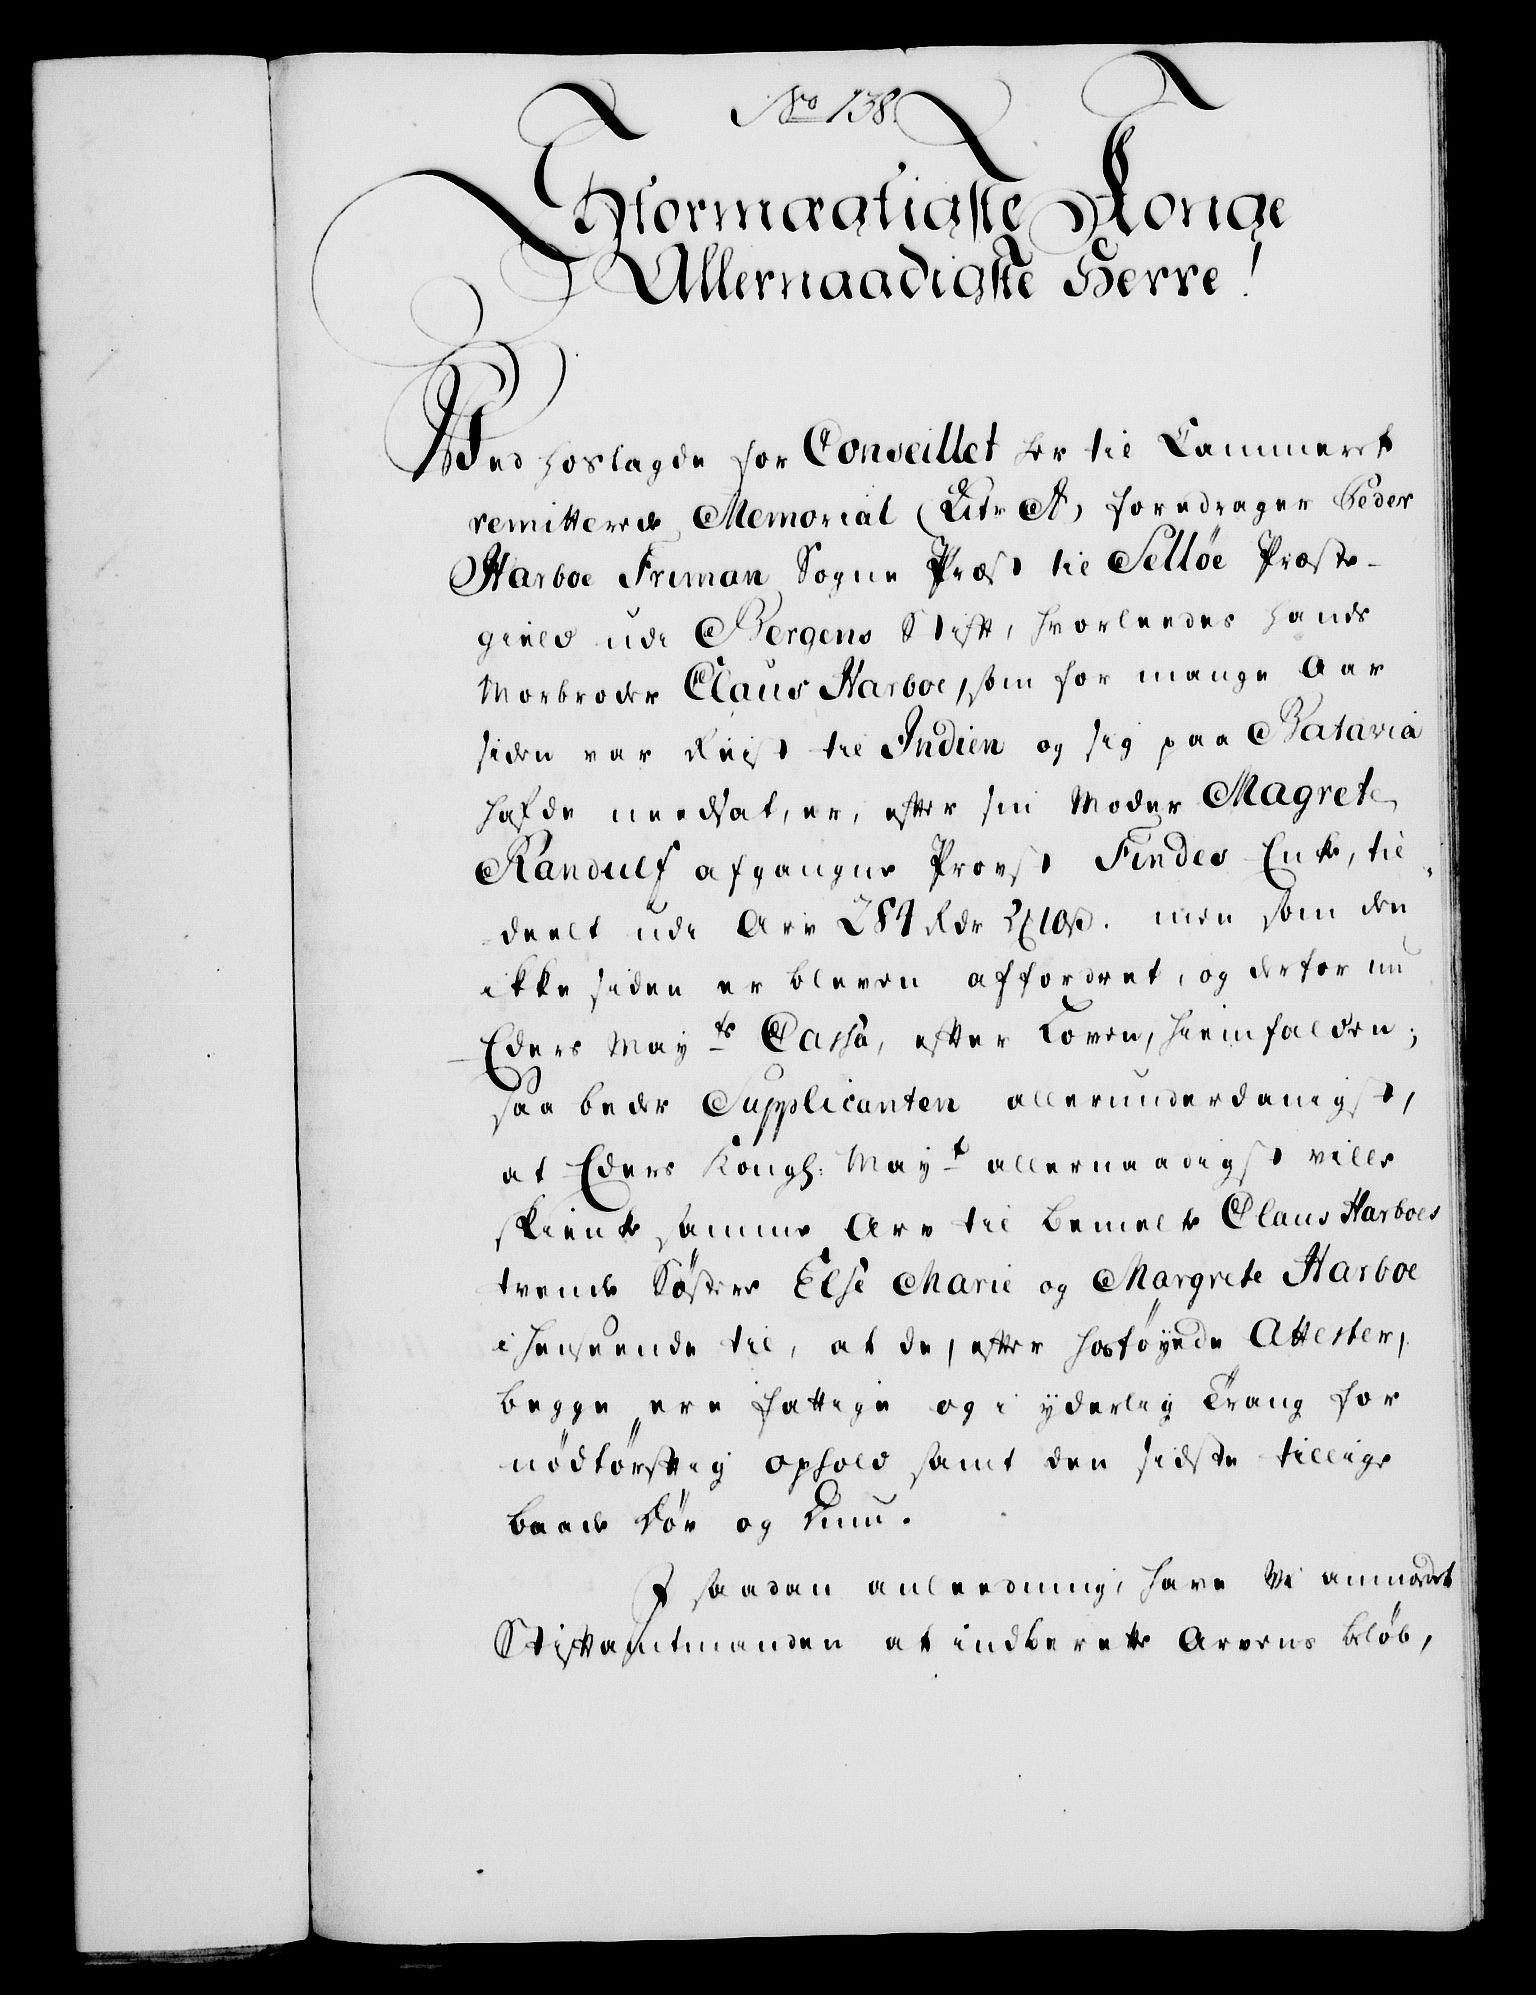 No 138.
Stormægtigste Konge
Allernaadigste Herre!
Ved hoslagde for Conseillet her til Cammeret
remitterede Memorial (Litr A) foredrager Peder
Harboe Friman Sogne Præst til Selløe Præste-
gield udi Bergens Stift, hvorleedes hands
Morbroder Claus Harboe, som for mange Aar
siden var Reist til Indien og sig paa Batavia
hafde needsat, er, efter sin Moder Magrete
Randulf afgangne Provst Findes Enke, til
deelt udi Arv 284 Rdr 2 10 s. men som den
ikke siden er bleven affordret, og derfor nu
Eders Mayts Cassa, efter Loven, hiemfalden;
saa beder Supplicanten allerunderdanigst,
at Eders Kongl: Mayt allernaadigst ville
skienke samme Arv til bemelte Claus Harboes
tvende Söstere Else Marie og Margrete Harboe
i henseende til, at de, efter hosföyede Attester,
begge ere fattige og i yderlig Trang for
nödtörftig ophold samt den sidste tillige
baade Döv og Dum.
I saadan anleedning, have Vi anmodet
Stiftamtmanden at indberette Arvens beløb,